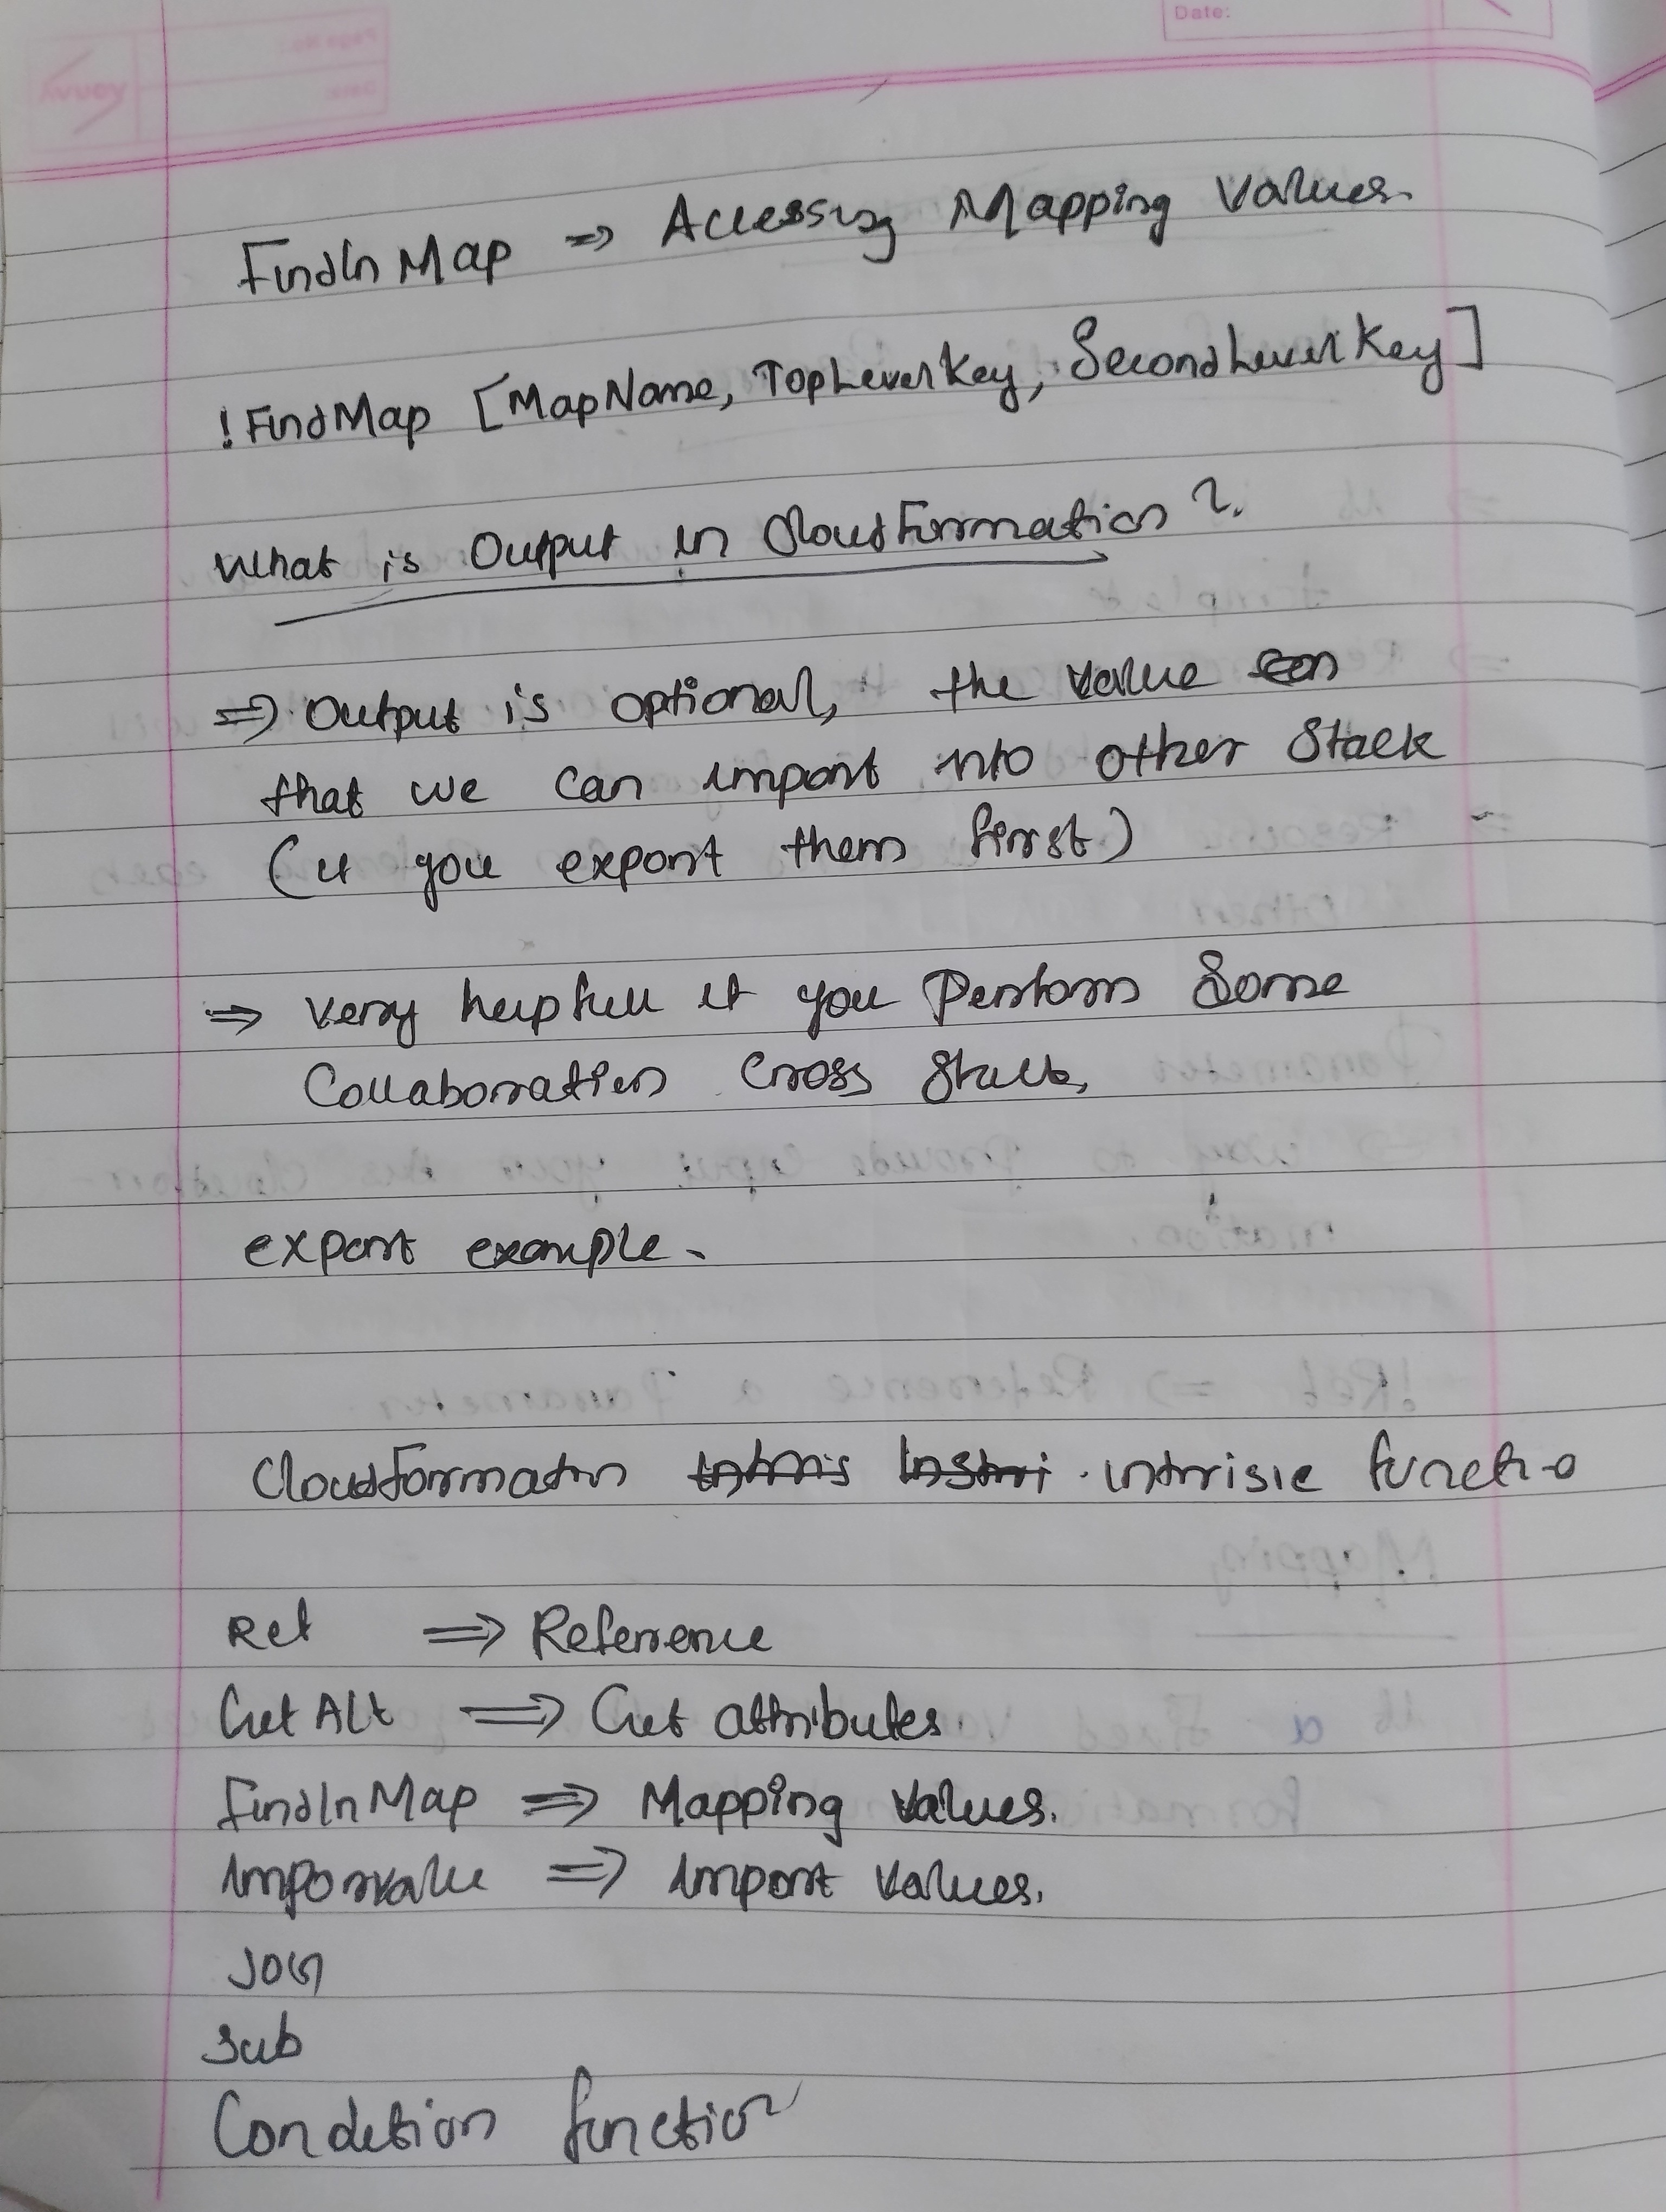 Date:
FindIn Map => Accessing Mapping Values.
!FindMap [MapName, TopLevelKey, SecondLevelKey]
What is Output in CloudFormation?
=> Output is optional, the value
that we can import into other Stack
(if you export them first)
=> Very helpfull if you Perform Some
Collaboration Cross Stack,
export example.
CloudFormation intrisic functio
Ref => Reference
Get Att => Get attributes.
FindIn Map => Mapping values.
Imporvalue => Import Values.
Join
Sub
Condition function